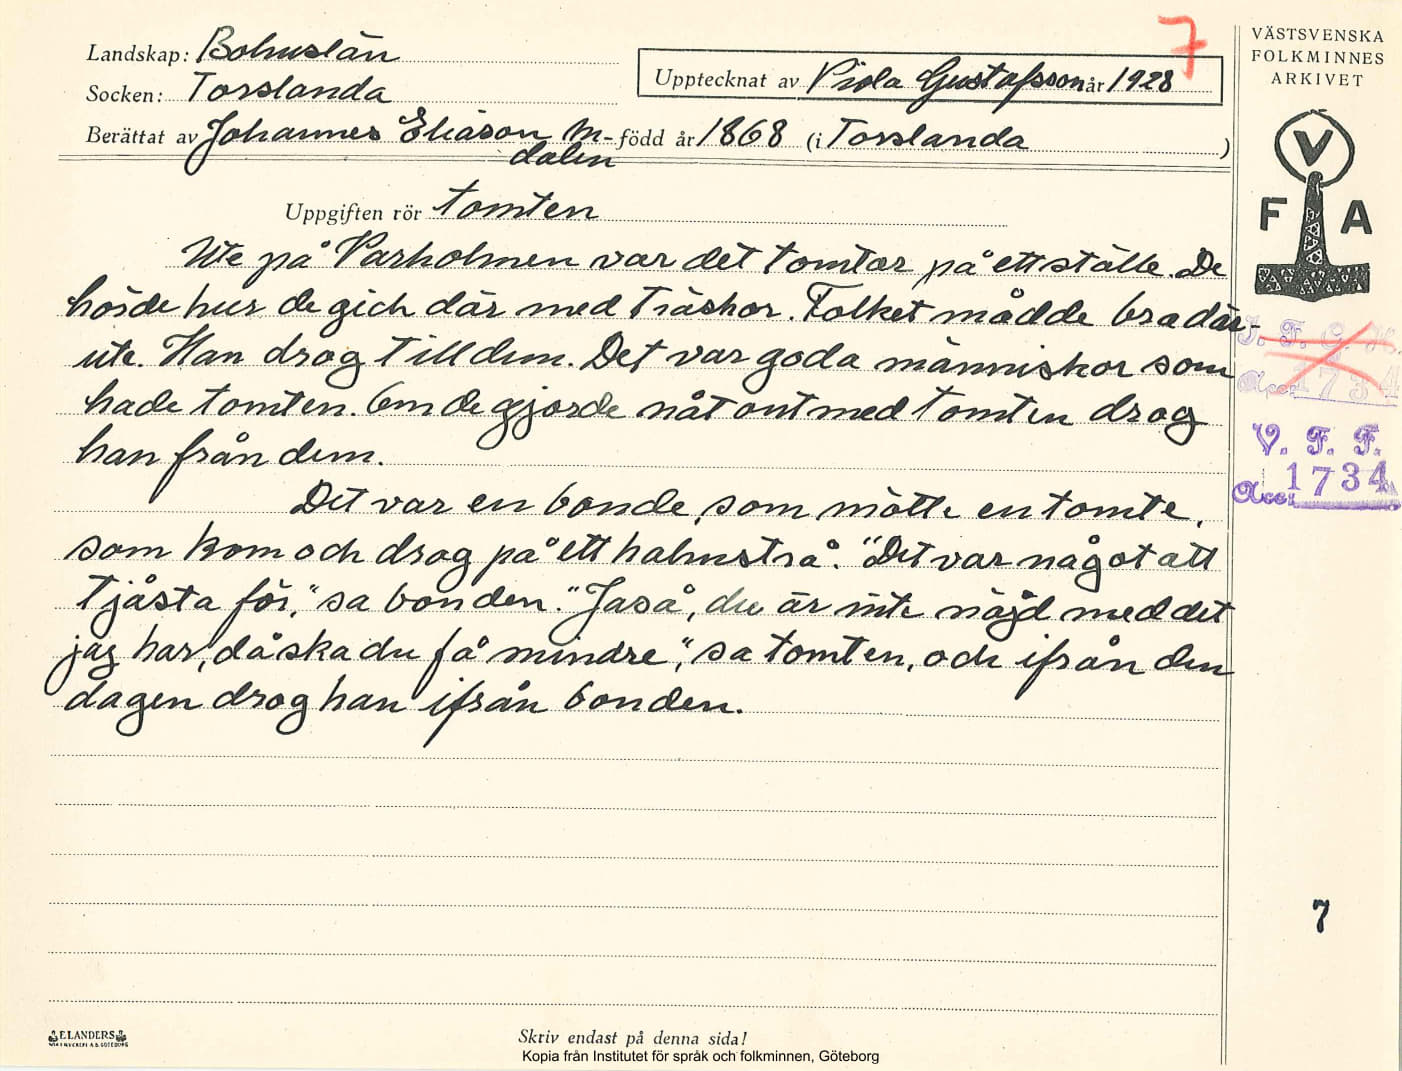 7
Landskap: Bohuslän
Socken: Torslanda
Upptecknat av Viola Gustafsson år 1928
Berättat av Johannes Eliason M-
dalen
född år 1868 (i Torslanda )
Uppgiften rör tomten
Ute på Varholmen var det tomtar på ett ställe. De
hörde hur de gick där med träskor. Folket mådde bra där-
ute. Han drog till dem. Det var goda människor som
hade tomten. Om de gjorde nåt ont med tomten drog
han från dem.
Det var en bonde, som mötte en tomte,
som kom och drog på ett halmstrå. "Det var något att
tjåsta för," sa bonden. "Jaså, du är inte nöjd med det
jag har, då ska du få mindre", sa tomten, och ifrån den
dagen drog han ifrån bonden.
VÄSTSVENSKA
FOLKMINNES
ARKIVET
V
F A
I. F. G. H.
Acc. 1734
V. F. F.
Acc. 1734
7
ELANDERS
Skriv endast på denna sida!
Kopia från Institutet för språk och folkminnen, Göteborg